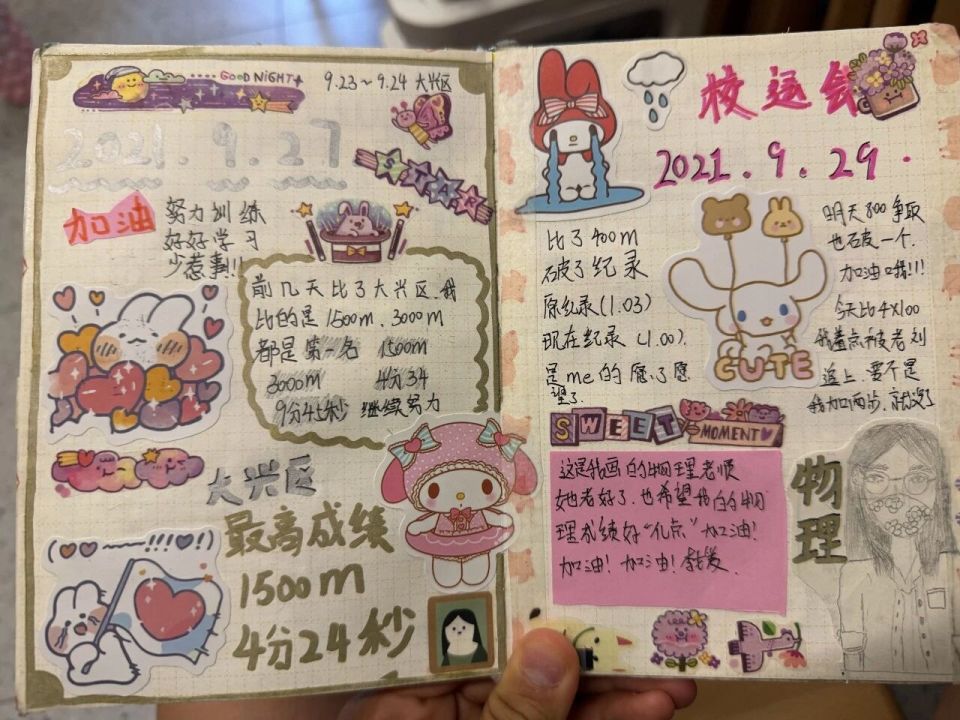 GOOD NIGHT
9.23~9.24 大兴区
2021.9.27
STAR
加油
努力训练
好好学习
少惹事!!
前几天比了大兴区.我
比的是1500m.3000m
都是第一名 1500m
3000m 4分34
9分45秒 继续努力
大兴区
最高成绩
1500m
4分24秒
校运会
2021.9.29.
比了400m
破了纪录
原纪录(1.03)
现在纪录(1.00).
是me的愿了愿
望了
明天800争取
也破一个.
加油哦!!!
今天比4×100
我差点被老刘
追上.要不是
我加两步.就没了
CUTE
SWEET
MOMENT
这是我画的物理老师
她老好了.也希望我的物
理成绩好“亿点”加油!
加油!加油!
物理